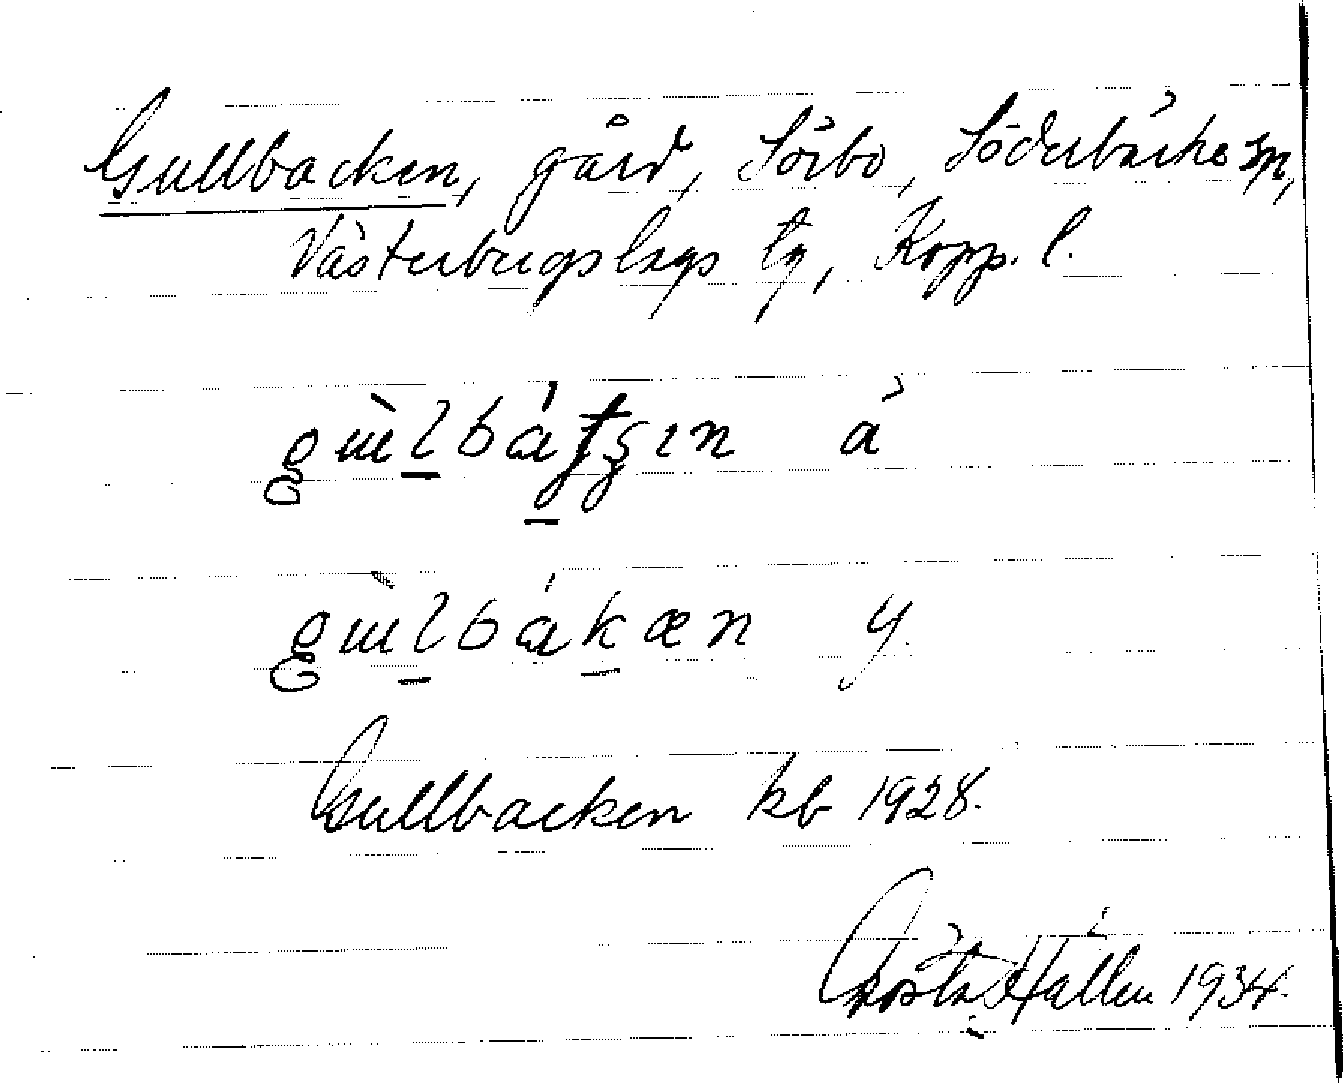 Gullbacken, gård, Sörbo, Söderbärke sn,
Västerbergslags tg, Kopp. l.
å
y.
Gullbacken kb 1928.
Gösta Hallén 1934.